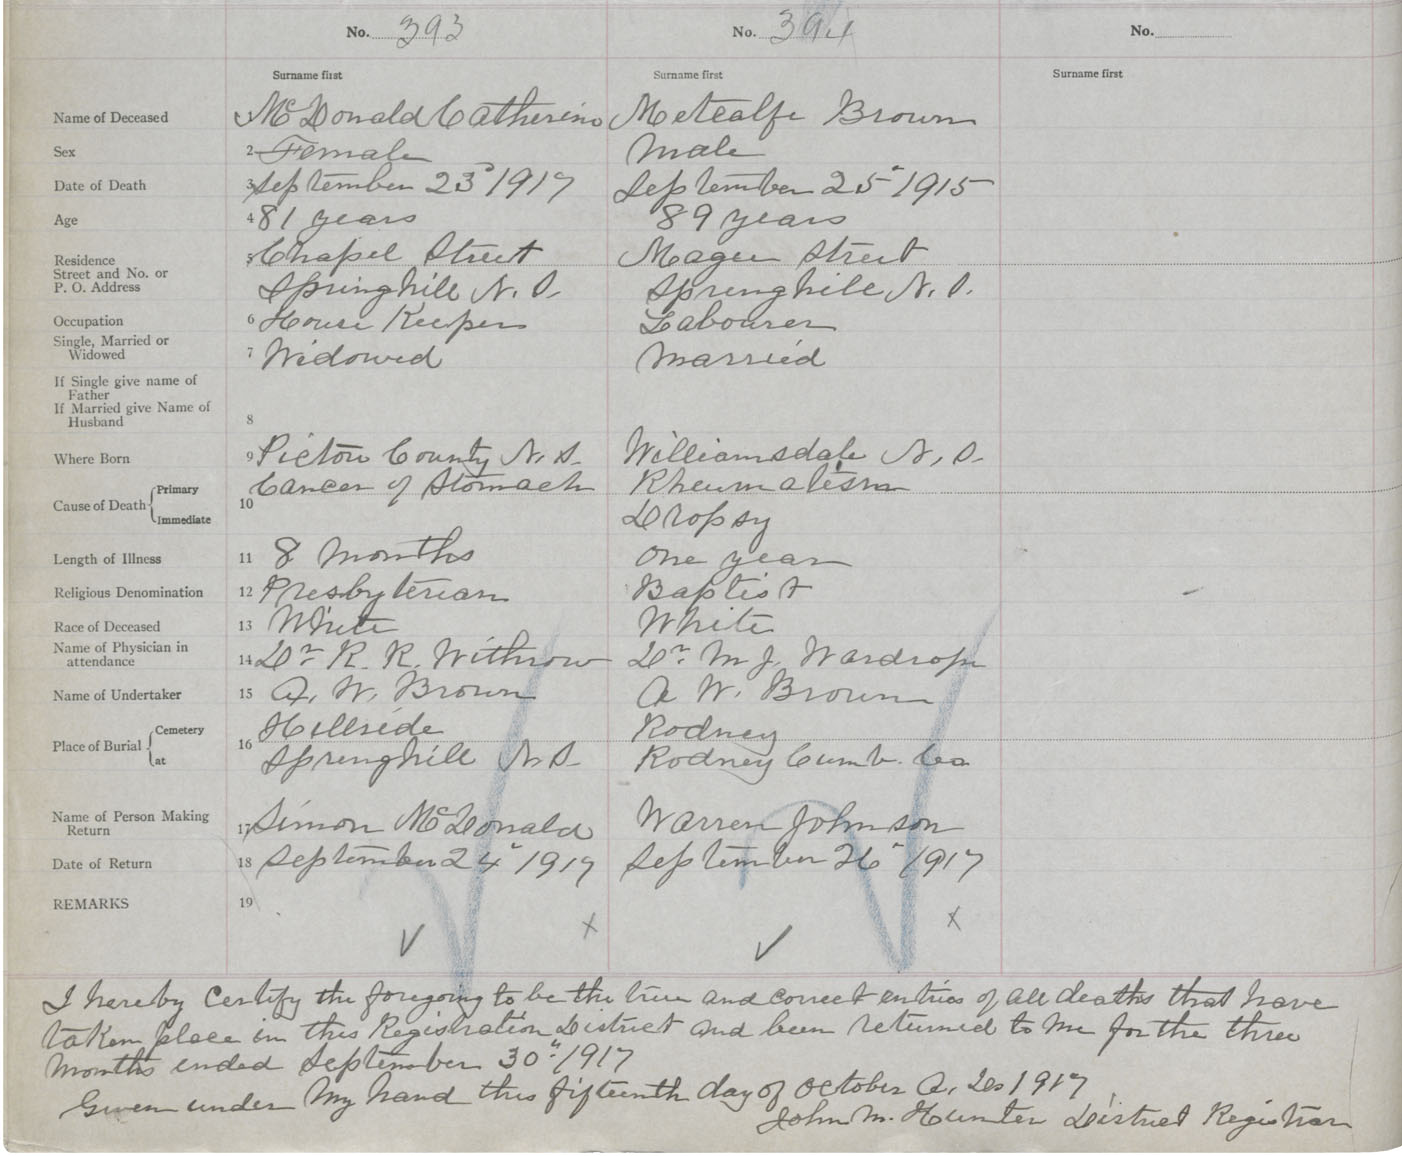 No. 393 No. 394 No.
Surname first Surname first Surname first
Name of Deceased 1 McDonald Catherine Metcalfe Brown
Sex 2 Female Male
Date of Death 3 September 23" 1917 September 25" 1915
Age 4 81 years 89 years
Residence 5 Chapel Street Magee Street
Street and No. or
P. O. Address Springhill N. S. Springhill N. S.
Occupation 6 House Keeper Labourer
Single, Married or
Widowed 7 Widowed Married
If Single give name of
Father
If Married give Name of
Husband 8
Where Born 9 Pictou County N. S. Williamsdale N. S.
Cause of Death Primary 10 Cancer of Stomach Rheumatism
Immediate Dropsy
Length of Illness 11 8 Months One year
Religious Denomination 12 Presbyterian Baptist
Race of Deceased 13 White White
Name of Physician in
attendance 14 Dr R. R. Withrow Dr. M J. Wardrope
Name of Undertaker 15 A. W. Brown A W. Brown
Place of Burial Cemetery 16 Hillside Rodney
at Springhill N. S. Rodney Cumb. Co
Name of Person Making
Return 17 Simon McDonald Warren Johnson
Date of Return 18 September 24" 1917 September 26" 1917
REMARKS 19
I hereby Certify the foregoing to be the true and correct entries of all deaths that have
taken place in this Registration District and been returned to me for the three
Months ended September 30" 1917
Given under My hand this fifteenth day of October A. D. 1917
John M. Hunter District Registrar